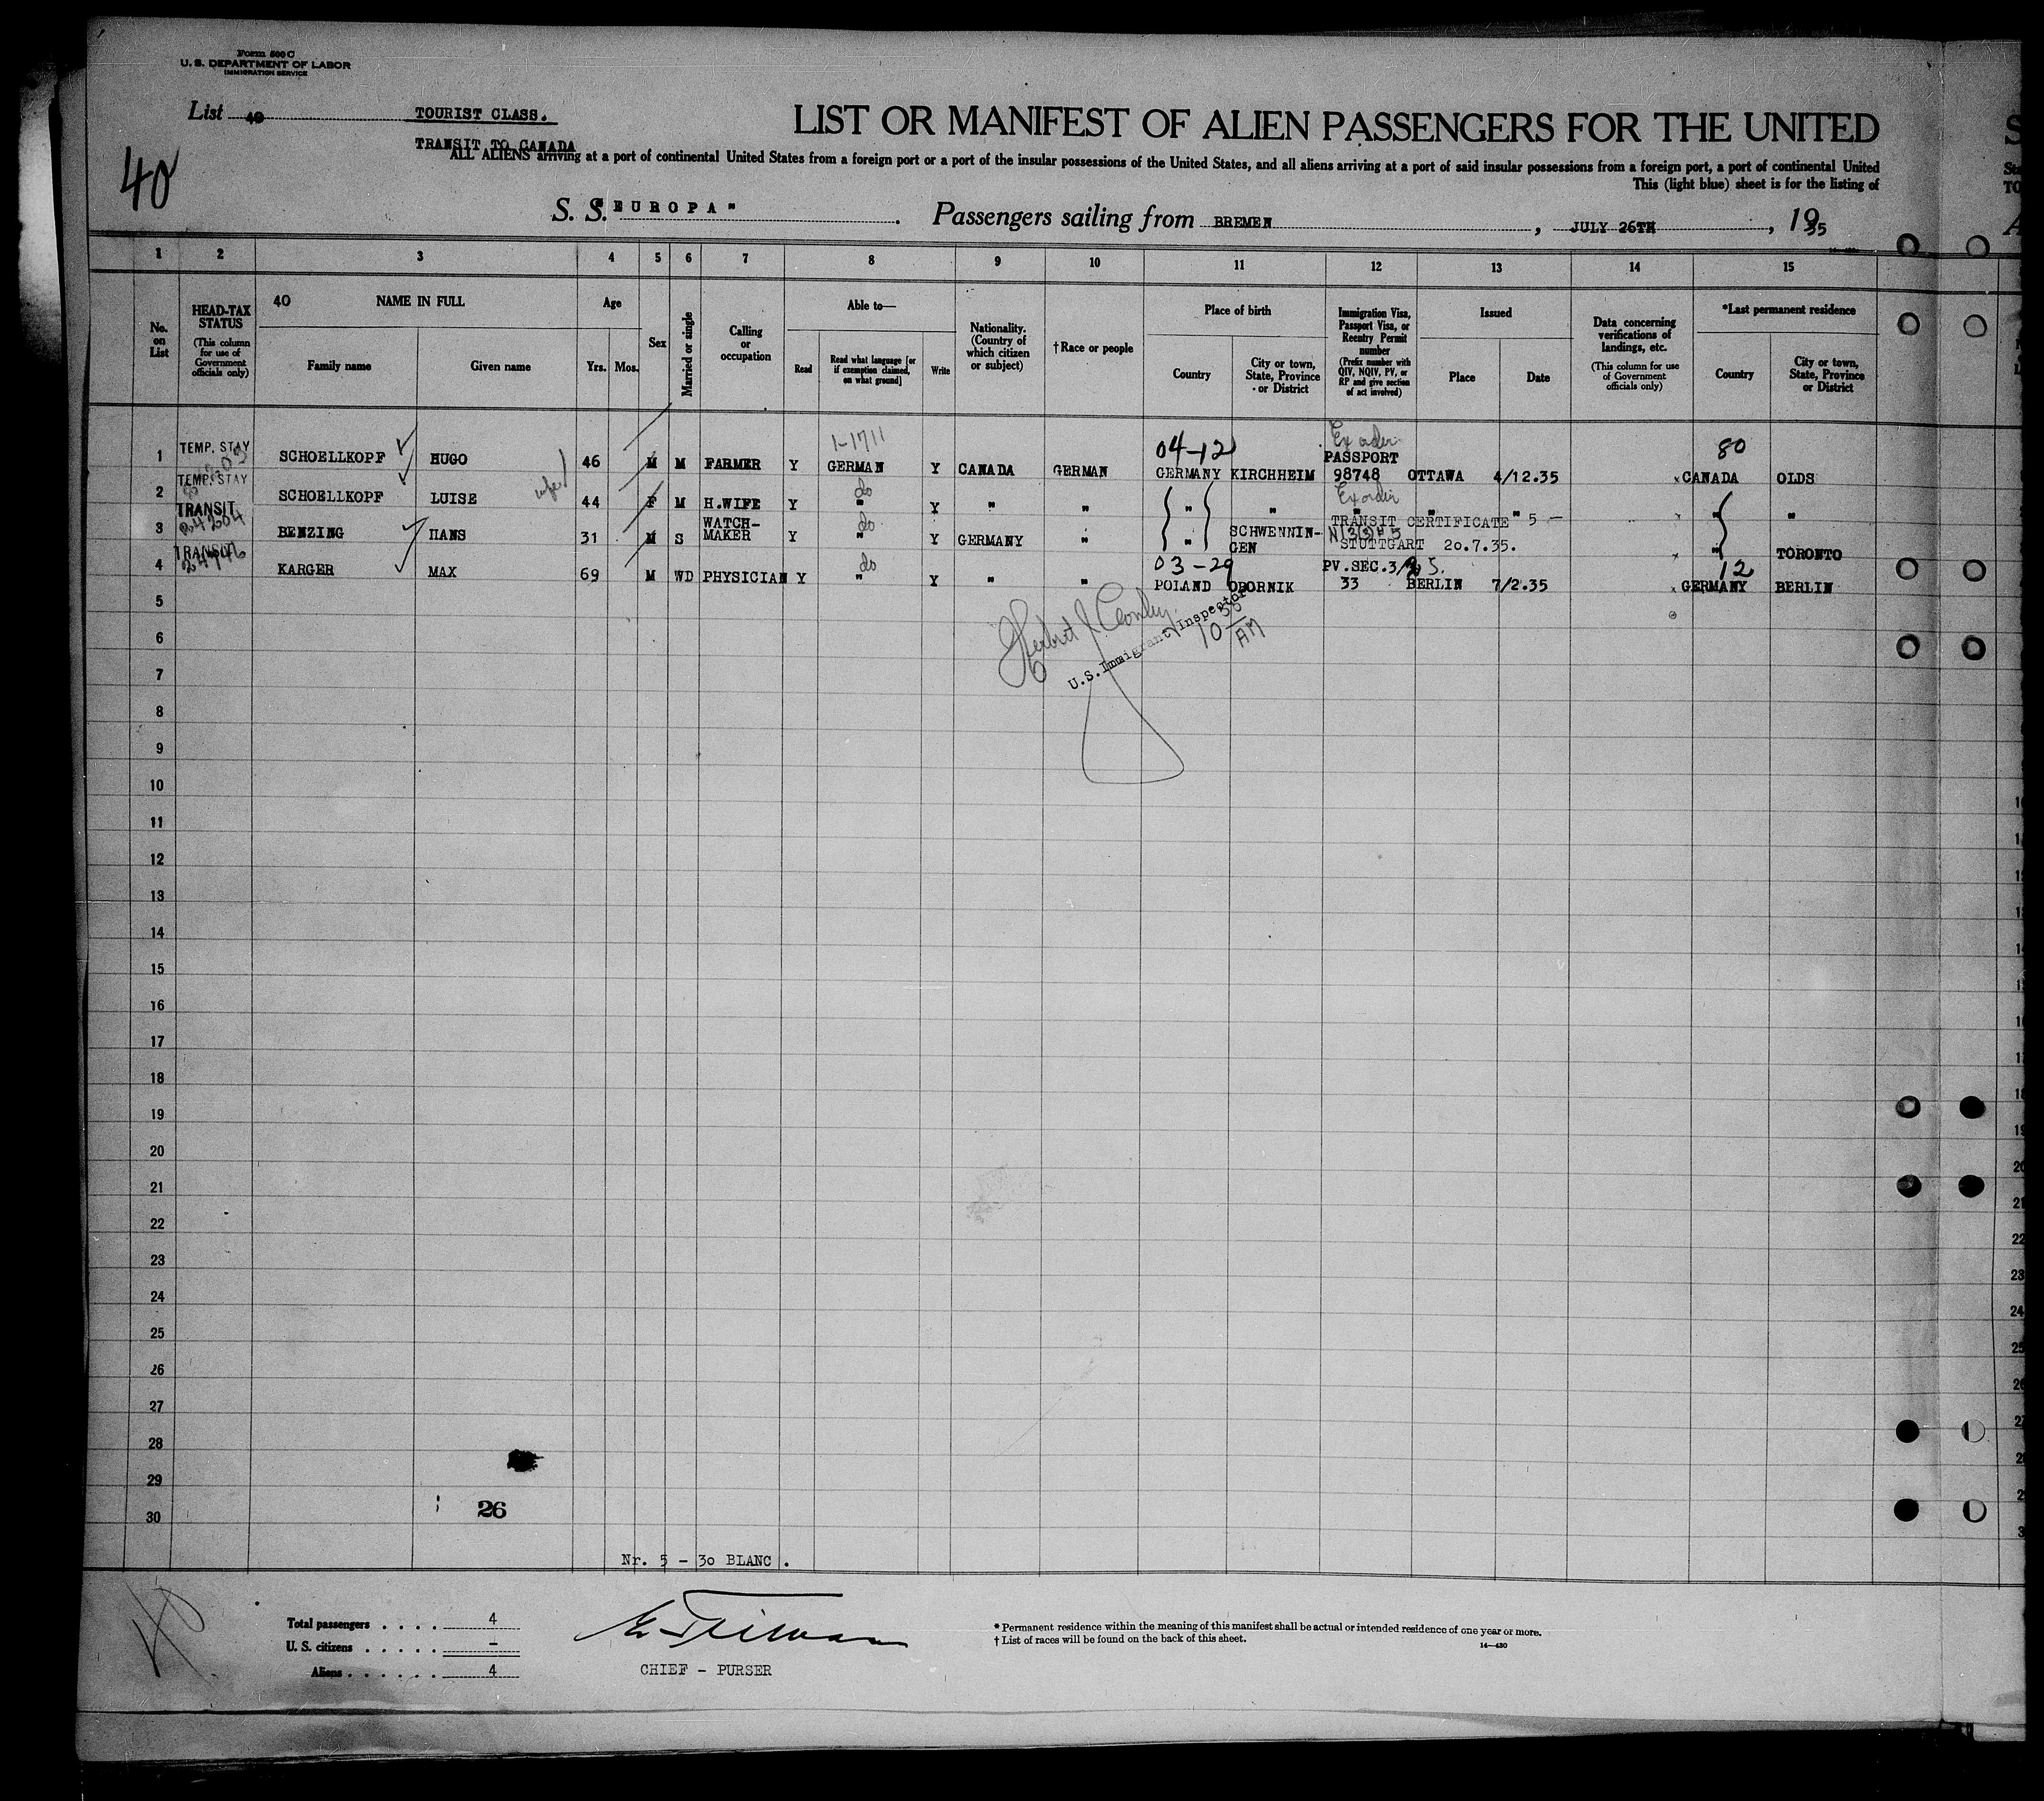 Form 500 C
U. S. DEPARTMENT OF LABOR
IMMIGRATION SERVICE
List 40
TOURIST CLASS.
TRANSIT TO CANADA
40
LIST OR MANIFEST OF ALIEN PASSENGERS FOR THE UNITED
ALL ALIENS arriving at a port of continental United States from a foreign port or a port of the insular possessions of the United States, and all aliens arriving at a port of said insular possessions from a foreign port, a port of continental United
This (light blue) sheet is for the listing of
S. S. "EUROPA" . Passengers sailing from BREMEN , JULY 26TH , 1935
1 2 3 4 5 6 7 8 9 10 11 12 13 14 15
No. on List
HEAD-TAX STATUS (This column for use of Government officials only)
40 NAME IN FULL
Family name Given name
Age
Yrs. Mos.
Sex
Married or single
Calling or occupation
Able to—
Read
Read what language [or if exemption claimed, on what ground]
Write
Nationality. (Country of which citizen or subject)
†Race or people
Place of birth
Country
City or town, State, Province or District
Immigration Visa, Passport Visa, or Reentry Permit number (Prefix number with QIV, NQIV, PV, or RP and give section of act involved)
Issued
Place Date
Data concerning verifications of landings, etc. (This column for use of Government officials only)
*Last permanent residence
Country
City or town, State, Province or District
1-1711 04-12 Ex order 80
1 TEMP. STAY SCHOELLKOPF HUGO 46 M M FARMER Y GERMAN Y CANADA GERMAN GERMANY KIRCHHEIM PASSPORT 98748 OTTAWA 4/12.35 CANADA OLDS
2 TEMP. STAY SCHOELLKOPF LUISE wife 44 F M H.WIFE Y do " Y " " " " Ex order " " " " "
3 TRANSIT 24204 BENZING HANS 31 M S WATCH-MAKER Y do " Y GERMANY " " SCHWENNIN-GEN TRANSIT CERTIFICATE 5 — STUTTGART 20.7.35. " TORONTO
4 TRANSIT KARGER MAX 69 M WD PHYSICIAN Y do " Y " " 03-29 POLAND OBORNIK PV.SEC.3/ 5. 33 BERLIN 7/2.35 12 GERMANY BERLIN
U.S. Immigrant Inspector
10 AM
5
6
7
8
9
10
11
12
13
14
15
16
17
18
19
20
21
22
23
24
25
26
27
28
29
26
30
Nr. 5 - 30 BLANC .
40
Total passengers . . . . 4
U. S. citizens . . . . . -
Aliens . . . . . . 4
CHIEF - PURSER
* Permanent residence within the meaning of this manifest shall be actual or intended residence of one year or more.
† List of races will be found on the back of this sheet.
14—430